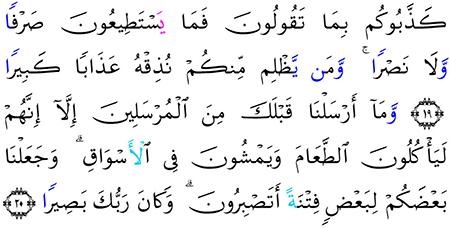 كَذَّبُوكُم بِمَا تَقُولُونَ فَمَا يَسْتَطِيعُونَ صَرْفًا
وَّلَا نَصْرًا ۚ وَّمَن يَّظْلِم مِّنكُمْ نُذِقْهُ عَذَابًا كَبِيرًا
﴿١٩﴾ وَّمَآ أَرْسَلْنَا قَبْلَكَ مِنَ الْمُرْسَلِينَ إِلَّآ إِنَّهُمْ
لَيَأْكُلُونَ الطَّعَامَ وَيَمْشُونَ فِى الْأَسْوَاقِ ۗ وَجَعَلْنَا
بَعْضَكُمْ لِبَعْضٍ فِتْنَةً أَتَصْبِرُونَ ۗ وَكَانَ رَبُّكَ بَصِيرًا ﴿٢٠﴾